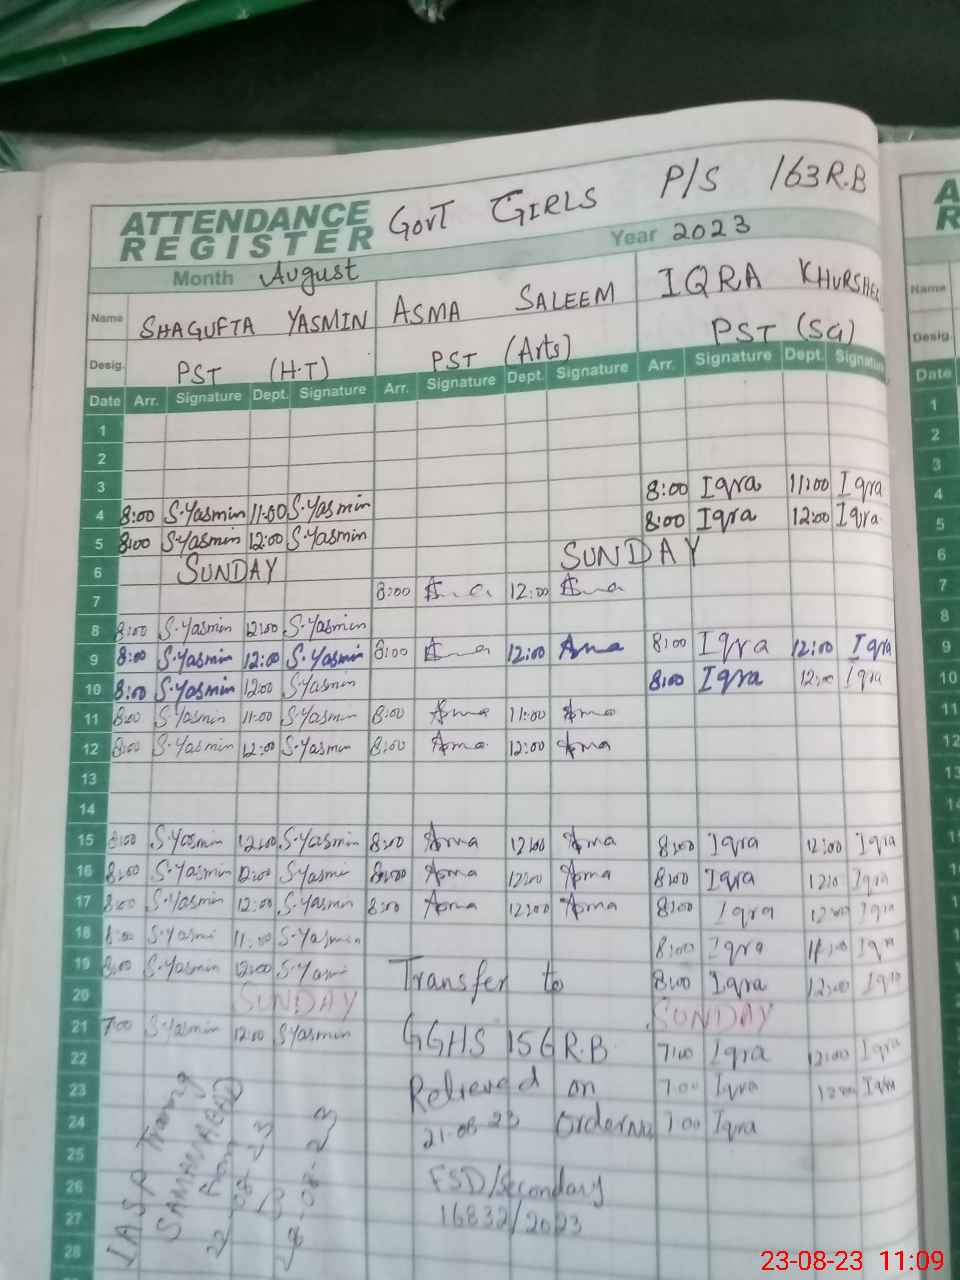 GOVT GIRLS P/S 163 R.B
ATTENDANCE
REGISTER
Month August Year 2023
Name SHAGUFTA YASMIN ASMA SALEEM IQRA KHURSHEE
Desig. PST (H.T) PST (Arts) PST (SG)
Date Arr. Signature Dept. Signature Arr. Signature Dept. Signature Arr. Signature Dept. Signature
1
2
3 8:00 Iqra 11:00 Iqra
4 8:00 S.Yasmin 11:00 S.Yasmin 8:00 Iqra 12:00 Iqra
5 8:00 S.Yasmin 12:00 S.Yasmin SUNDAY
6 SUNDAY
7 8:00 12:00
8 8:00 S.Yasmin 12:00 S.Yasmin
9 8:00 S.Yasmin 12:00 S.Yasmin 8:00 12:00 8:00 Iqra 12:00 Iqra
10 8:00 S.Yasmin 12:00 S.Yasmin 8:00 Iqra 12:00 Iqra
11 8:00 S.Yasmin 11:00 S.Yasmin 8:00 Asma 11:00 Asma
12 8:00 S.Yasmin 12:00 S.Yasmin 8:00 Asma 12:00 Asma
13
14
15 8:00 S.Yasmin 12:00 S.Yasmin 8:00 Asma 12:00 Asma 8:00 Iqra 12:00 Iqra
16 8:00 S.Yasmin 12:00 S.Yasmi 8:00 Asma 12:00 Asma 8:00 Iqra 12:0 Iqra
17 8:00 S.Yasmin 12:00 S.Yasmin 8:00 Asma 12:00 Asma 8:00 Iqra 12:00 Iqra
18 8:00 S.Yasmi 11:00 S.Yasmin 8:00 Iqra 11:00 Iqra
19 8:00 S.Yasmin 12:00 S.Yasmi Transfer to 8:00 Iqra 12:00 Iqra
20 SUNDAY SUNDAY
21 7:00 S.Yasmin 12:00 S.Yasmin GGHS 156 R.B 7:00 Iqra 12:00 Iqra
22 7:00 Iqra 12:00 Iqra
23 Relieved on 7:00 Iqra
24 21-08-23 Order No
25
26 FSD/Secondary
27 16832/2023
28
SAMANABAD
From
22-08-23
Name
Desig.
Date
1
2
3
4
5
6
7
8
9
10
11
12
13
23-08-23 11:09